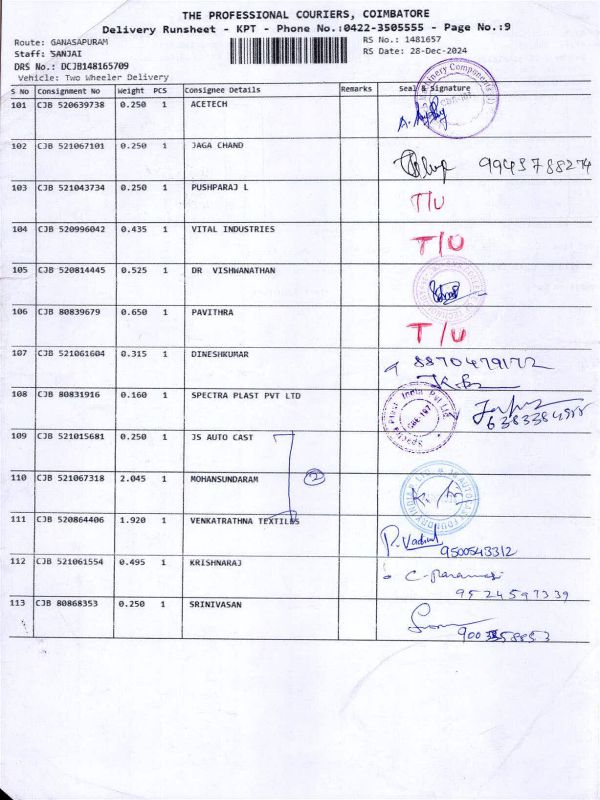 THE PROFESSIONAL COURIERS, COIMBATORE
Delivery Runsheet - KPT - Phone No.:0422-3505555 - Page No.:9
Route: GANASAPURAM RS No.: 1481657
Staff: SANJAI RS Date: 28-Dec-2024
DRS No.: DCJB148165709
Vehicle: Two Wheeler Delivery
S No Consignment No Weight PCS Consignee Details Remarks Seal & Signature
101 CJB 520639738 0.250 1 ACETECH
102 CJB 521067101 0.250 1 JAGA CHAND 9943788274
103 CJB 521043734 0.250 1 PUSHPARAJ L T/U
104 CJB 520996042 0.435 1 VITAL INDUSTRIES T/U
105 CJB 520814445 0.525 1 DR VISHWANATHAN
106 CJB 80839679 0.650 1 PAVITHRA T/U
107 CJB 521061604 0.315 1 DINESHKUMAR 8870479172
108 CJB 80831916 0.160 1 SPECTRA PLAST PVT LTD
109 CJB 521015681 0.250 1 JS AUTO CAST
110 CJB 521067318 2.045 1 MOHANSUNDARAM 2
111 CJB 520864406 1.920 1 VENKATRATHNA TEXTILES 9500543312
112 CJB 521061554 0.495 1 KRISHNARAJ 9524597339
113 CJB 80868353 0.250 1 SRINIVASAN